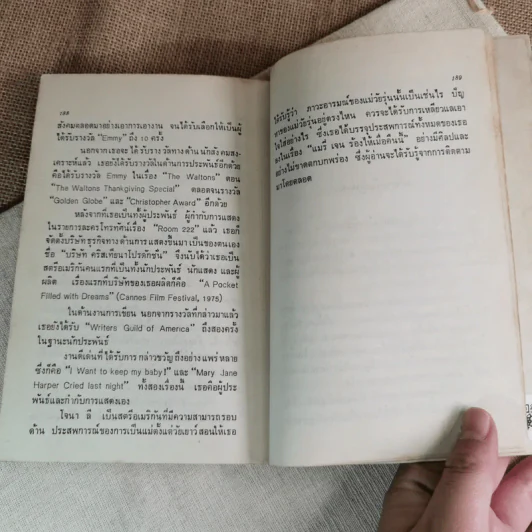 188
สังคมตลอดมาอย่างเอาการเอางาน จนได้รับเลือกให้เป็นผู้
ได้รับรางวัล "Emmy" ถึง 10 ครั้ง
นอกจากเธอจะได้รับรางวัลทางด้านนักสังคมสง-
เคราะห์แล้ว เธอก็ยังได้รับรางวัลในด้านการประพันธ์อีกด้วย
คือได้รับรางวัล Emmy ในเรื่อง "The Waltons" ตอน
"The Waltons Thankgiving Special" ตลอดจนรางวัล
"Golden Globe" และ "Christopher Award" อีกด้วย
หลังจากที่เธอเป็นทั้งผู้ประพันธ์ ผู้กำกับการแสดง
ในรายการละครโทรทัศน์เรื่อง "Room 222" แล้ว เธอก็
จัดตั้งบริษัทธุรกิจทางด้านการแสดงขึ้นมาเป็นของตนเอง
ชื่อ "บริษัท คริสเทียนาโปรดักชั่น" จึงนับได้ว่าเธอเป็น
สตรีอเมริกันคนแรกที่เป็นทั้งนักประพันธ์ นักแสดง และผู้
ผลิต เรื่องแรกที่บริษัทของเธอผลิตก็คือ "A Pocket
Filled with Dreams" (Cannes Film Festival, 1975)
ในด้านงานการเขียน นอกจากรางวัลที่กล่าวมาแล้ว
เธอยังได้รับ "Writers Guild of America" ถึงสองครั้ง
ในฐานะนักประพันธ์
งานดีเด่นที่ได้รับการกล่าวขวัญถึงอย่างแพร่หลาย
ซึ่งก็คือ "I Want to keep my baby!" และ "Mary Jane
Harper Cried last night" ทั้งสองเรื่องนี้ เธอคือผู้ประ
พันธ์และกำกับการแสดงเอง
โจนา ลี เป็นสตรีอเมริกันที่มีความสามารถรอบ
ด้าน ประสพการณ์ของการเป็นแม่ตั้งแต่วัยเยาว์สอนให้เธอ
189
ได้รับรู้ว่า ภาวะอารมณ์ของแม่วัยรุ่นนั้นเป็นเช่นไร ปัญ
หาของแม่วัยรุ่นอยู่ตรงไหน ควรจะได้รับการเหลียวแลเอา
ใจใส่อย่างไร ซึ่งเธอได้บรรจุประสพการณ์ทั้งหมดของเธอ
ลงในเรื่อง "แมรี่ เจน ร้องไห้เมื่อคืนนี้" อย่างมีศิลปและ
อย่างไม่ขาดตกบกพร่อง ซึ่งผู้อ่านจะได้รับรู้จากการติดตาม
มาโดยตลอด